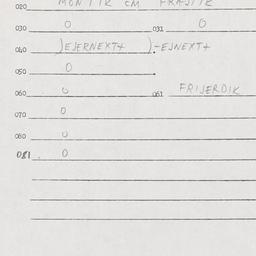 020
030 0 031 0
040 )EJERNEXT+ )-EJNEXT+
050 0
060 0 061 FRIJERDIK
070 0
080 0
081 0